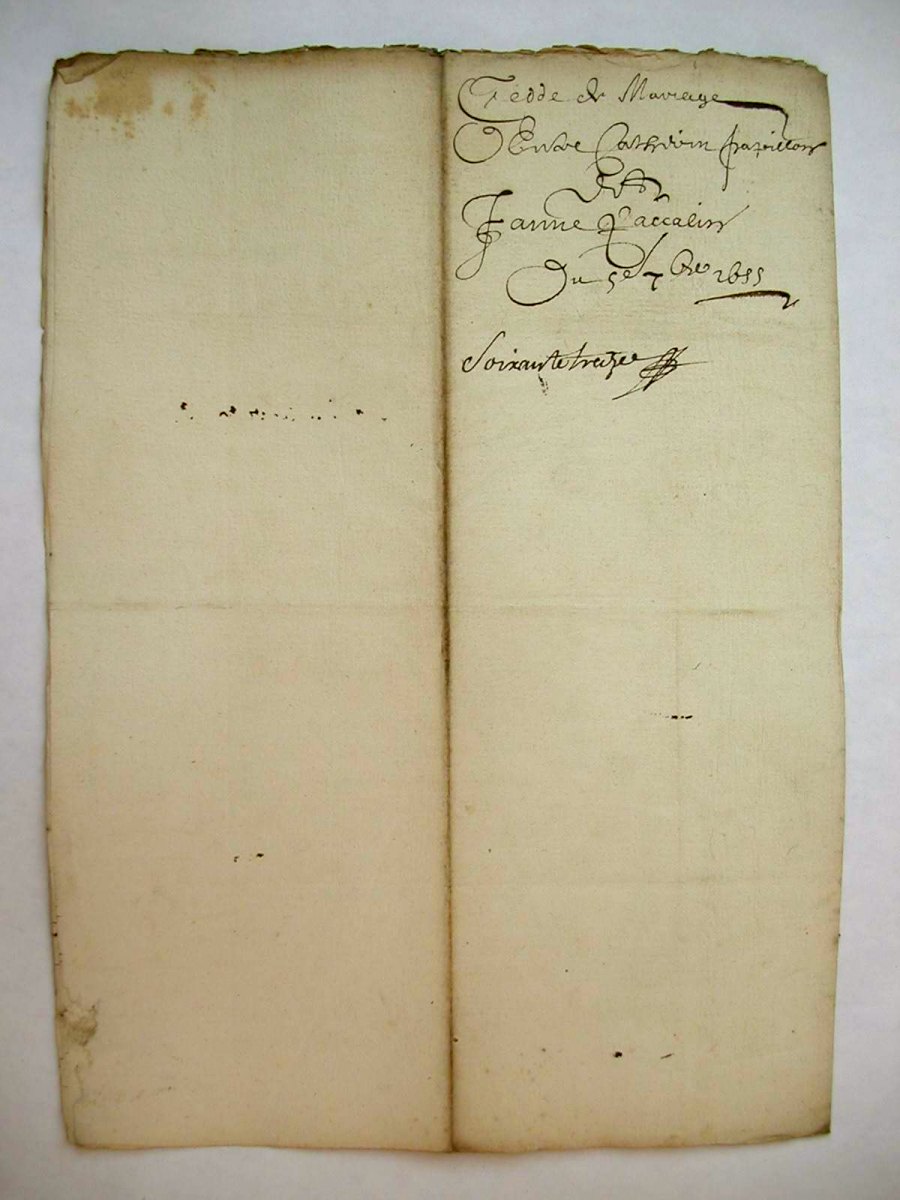 Cedde de Mariage
Entre Cathelin papillon
Et
Janne Paccalin
Du 5e 7bre 1655
Soixante treize